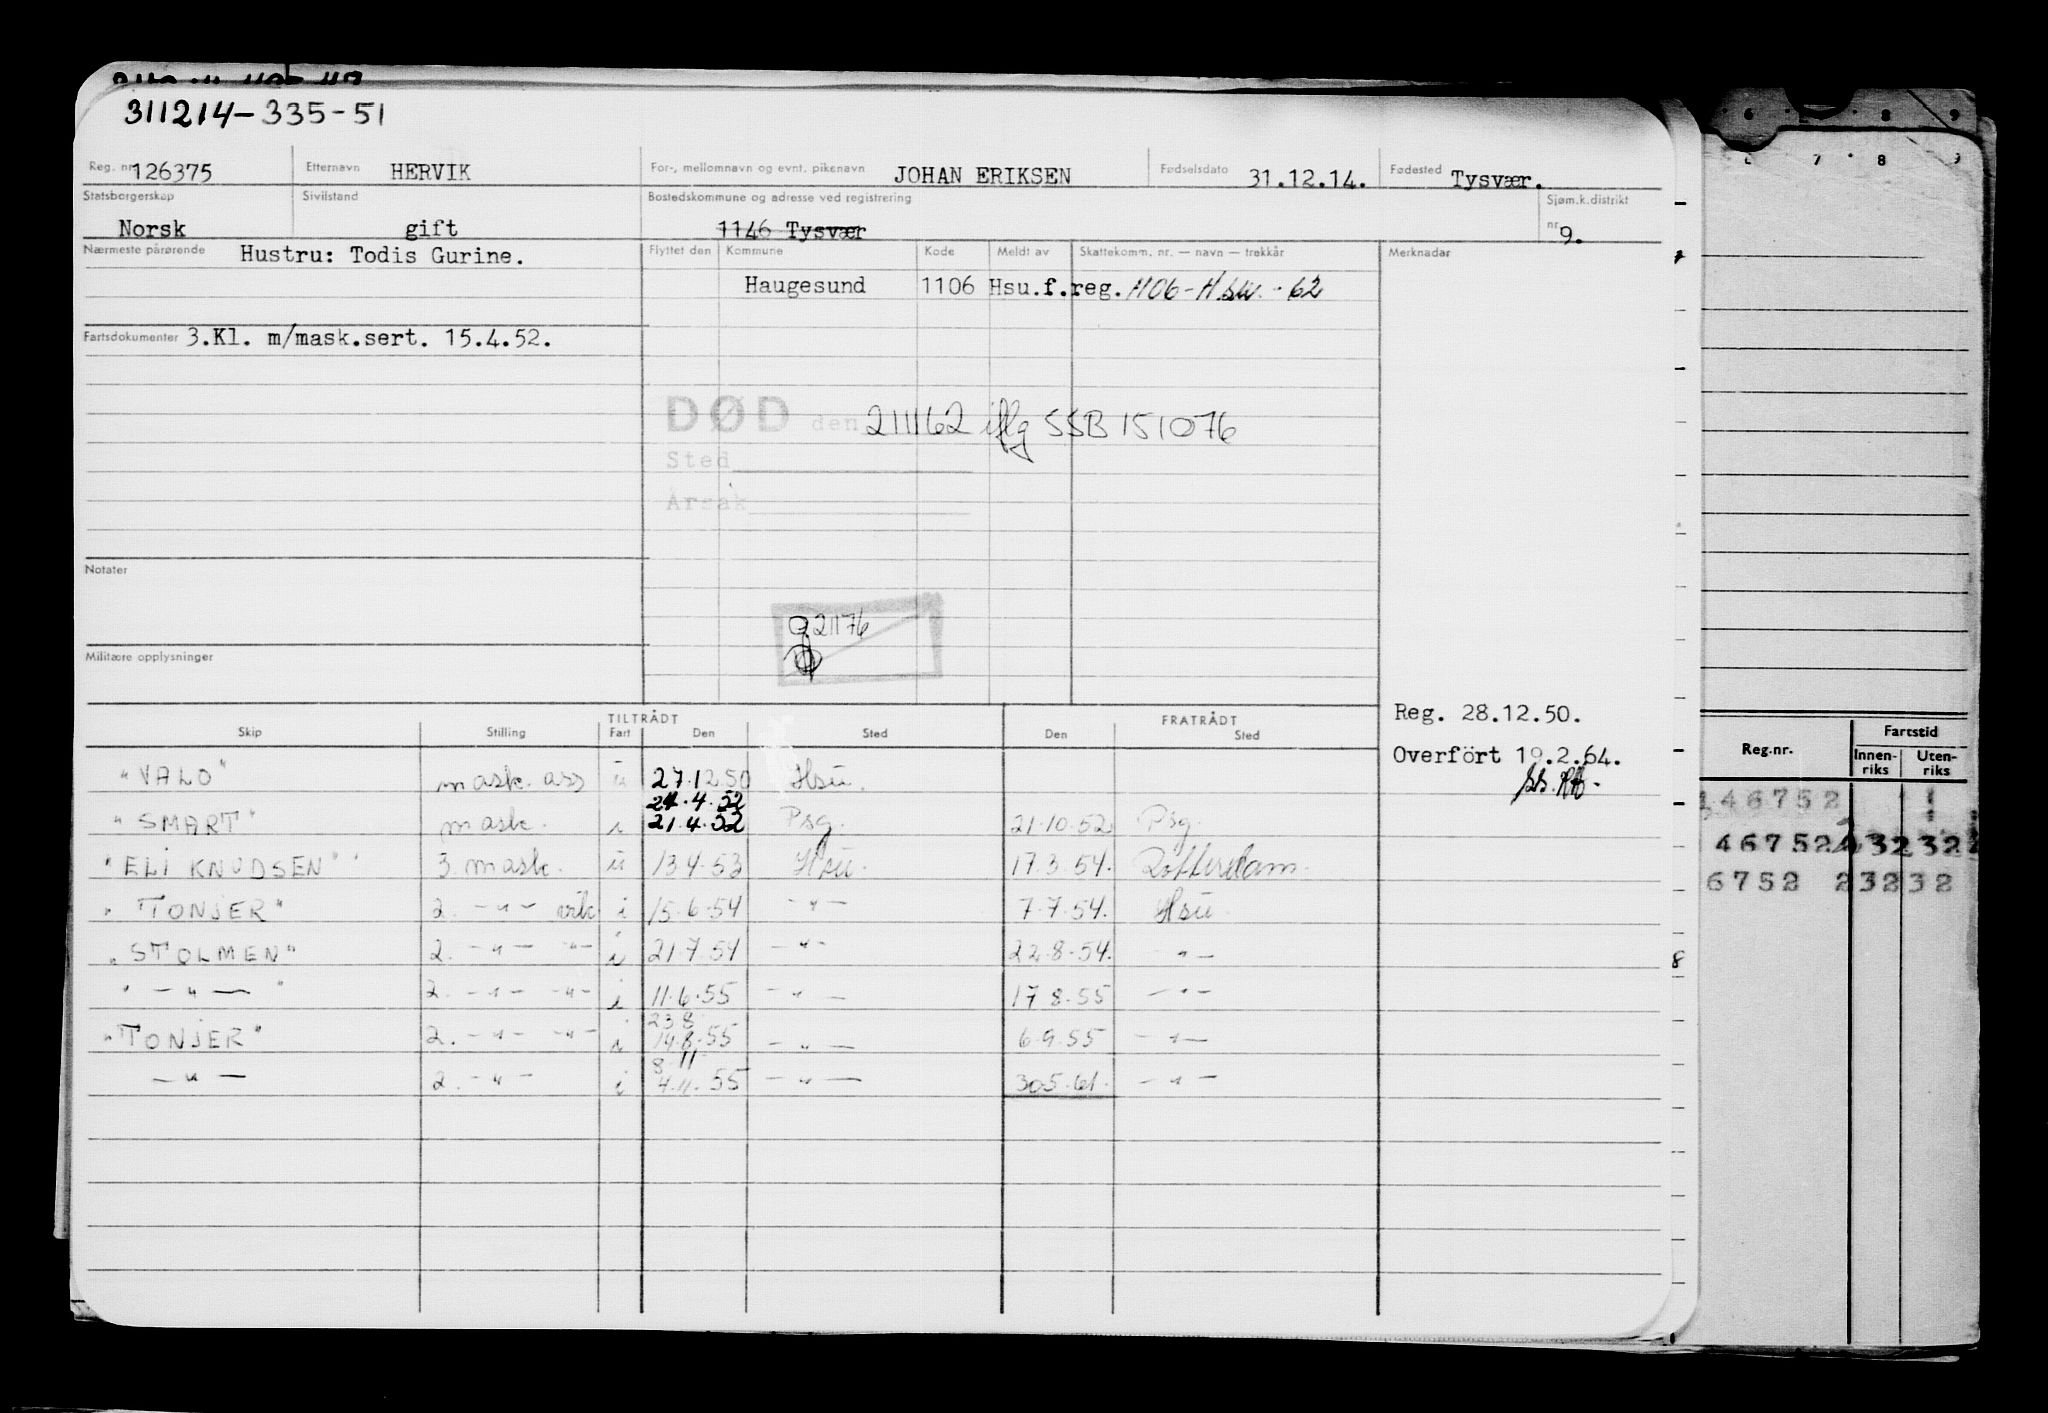 311214-335-51
Reg. nr. 126375 Etternavn HERVIK For-, mellomnavn og evnt. pikenavn JOHAN ERIKSEN Fødselsdato 31.12.14. Fødested Tysvær.
Statsborgerskap Sivilstand Bostedskommune og adresse ved registrering Sjøm.k.distrikt
Norsk gift 1146 Tysvær nr 9.
Nærmeste pårørende Hustru: Todis Gurine. Flyttet den Kommune Kode Meldt av Skattekomm. nr. — navn — trekkår Merknadar
Haugesund 1106 Hsu.f.reg. 1106-Hsu.-62
Fartsdokumenter 3.Kl. m/mask.sert. 15.4.52.
DØD den 211162 iflg SSB 151076
Sted
Årsak
Notater
921176
Militære opplysninger
Reg. 28.12.50.
TILTRÅDT FRATRÅDT
Skip Stilling Fart Den Sted Den Sted
Overfört 19.2.64.
"VALO" mask. ass u 27.12.50 Hsu.
24.4.52
"SMART" mask. i 21.4.52 Psg. 21.10.52 Psg.
"ELI KNUDSEN" 3. mask. u 13.4.53 Hsu. 17.3.54. Rotterdam.
"TONJER" 2. -"- vik i 15.6.54 -"- 7.7.54. Hsu
"STOLMEN" 2. -"- -"- i 21.7.54 -"- 22.8.54. -"-
" -"- " 2. -"- -"- i 11.6.55 -"- 17.8.55 -"-
23.8
"TONJER" 2. -"- -"- i 14.8.55 -"- 6.9.55 -"-
8.11
-"- 2. -"- i 4.11.55 -"- 30.5.61. -"-
6 8 9
7 8 9
Reg.nr. Fartstid
Innen-riks Uten-riks
146752
46752 232232
6752 23232
8